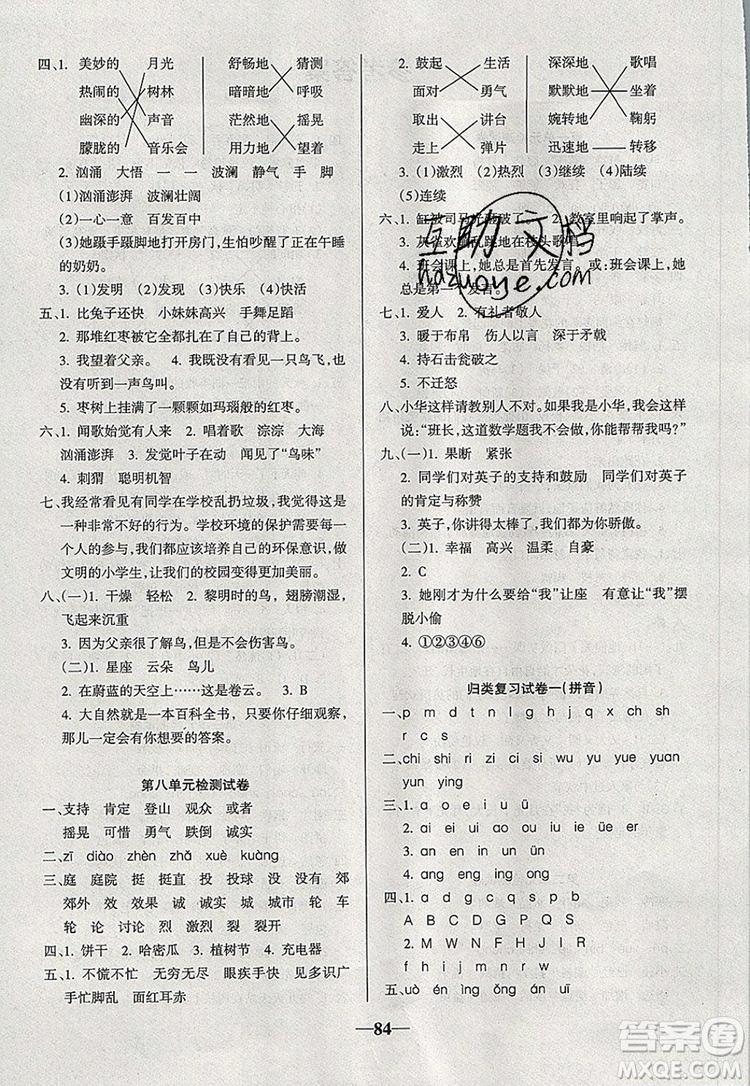 四、1. 美妙的 月光 舒畅地 猜测
热闹的 树林 暗暗地 呼吸
幽深的 声音 茫然地 摇晃
朦胧的 音乐会 用力地 望着
2. 汹涌 大悟 一 一 波澜 静气 手 脚
(1)汹涌澎湃 波澜壮阔
(2)一心一意 百发百中
(3)她蹑手蹑脚地打开房门,生怕吵醒了正在午睡
的奶奶。
3. (1)发明 (2)发现 (3)快乐 (4)快活
五、1. 比兔子还快 小妹妹高兴 手舞足蹈
2. 那堆红枣被刺猬扎在了自己的背上。
3. 我望着父亲。 4. 我既没有看见一只鸟飞,也
没有听到一声鸟叫。
5. 枣树上挂满了一颗颗如玛瑙般的红枣。
六、1. 闻歌始觉有人来 2. 唱着歌 淙淙 大海
汹涌澎湃 3. 发觉叶子在动 闻见了“鸟味”
4. 刺猬 聪明机智
七、我经常看见有同学在学校乱扔垃圾,我觉得这是
一种非常不好的行为。学校环境的保护需要每一
个人的参与,我们都应该培养自己的环保意识,做
文明的小学生,让我们的校园环境更加美丽。
八、(一)1. 干燥 轻松 2. 黎明时的鸟,翅膀潮湿,
飞起来沉重
3. 因为父亲很了解鸟,但是不会伤害鸟。
(二)1. 星座 云朵 鸟儿
2. 在蔚蓝的天空上……这是卷云。 3. B
4. 大自然就是一本百科全书,只要你仔细观察,
那儿一定会有你想要的答案。
第八单元检测试卷
一、支持 肯定 登山 观众 或者
摇晃 可惜 勇气 跌倒 诚实
二、zī diào zhèn zhǎ xuè kuàng
三、庭 庭院 挺 挺直 投 投球 没 没有 郊
郊外 效 效果 诚 诚实 城 城市 轮 车
轮 论 讨论 烈 激烈 裂 裂开
四、1. 饼干 2. 哈密瓜 3. 植树节 4. 充电器
五、1. 不慌不忙 无穷无尽 眼疾手快 见多识广
手忙脚乱 面红耳赤
2. 鼓起 生活 深深地 歌唱
面对 勇气 默默地 坐着
取出 讲台 婉转地 鞠躬
走上 弹片 迅速地 转移
3. (1)激烈 (2)热烈 (3)继续 (4)陆续
(5)连续
六、1. 缸被司马光砸破了。 2. 教室里响起了掌声。
3. 灰雀欢蹦乱跳地在枝头歌唱。
4. 班会课上,她总是首先发言。或:班会课上,她
总是第一个发言。
七、1. 爱人 2. 有礼者敬人
3. 暖于布帛 伤人以言 深于矛戟
4. 持石击瓮破之
5. 不迁怒
八、小华这样请教别人不对。如果我是小华,我会这样
说:“班长,这道数学题我不会做,你能帮帮我吗?”
九、(一)1. 果断 紧张
2. 同学们对英子的支持和鼓励 同学们对英子
的肯定与称赞
3. 英子,你讲得太棒了,我们为你骄傲。
(二)1. 幸福 高兴 温柔 自豪
2. C
3. 她刚才为什么要给“我”让座 有意让“我”摆
脱小偷
4. ①②③④⑥
归类复习试卷一(拼音)
一、p m d t n l g h j q x ch sh
r c s
二、chi shi ri zi ci si wu yu yue yuan
yin yun ying
三、1. ɑ o e i u ü
2. ɑi ei ui ɑo ou iu ie üe er
3. ɑn en in un ün
4. ɑng eng ing ong
四、1. ɑ b c d g p q s
A B C D G P Q S
2. M W N F H J I R
f h i j m n r w
五、uò én ìng ǒng án uī
84
互助文档
hazuoye.com
答案圈
MXQE.COM